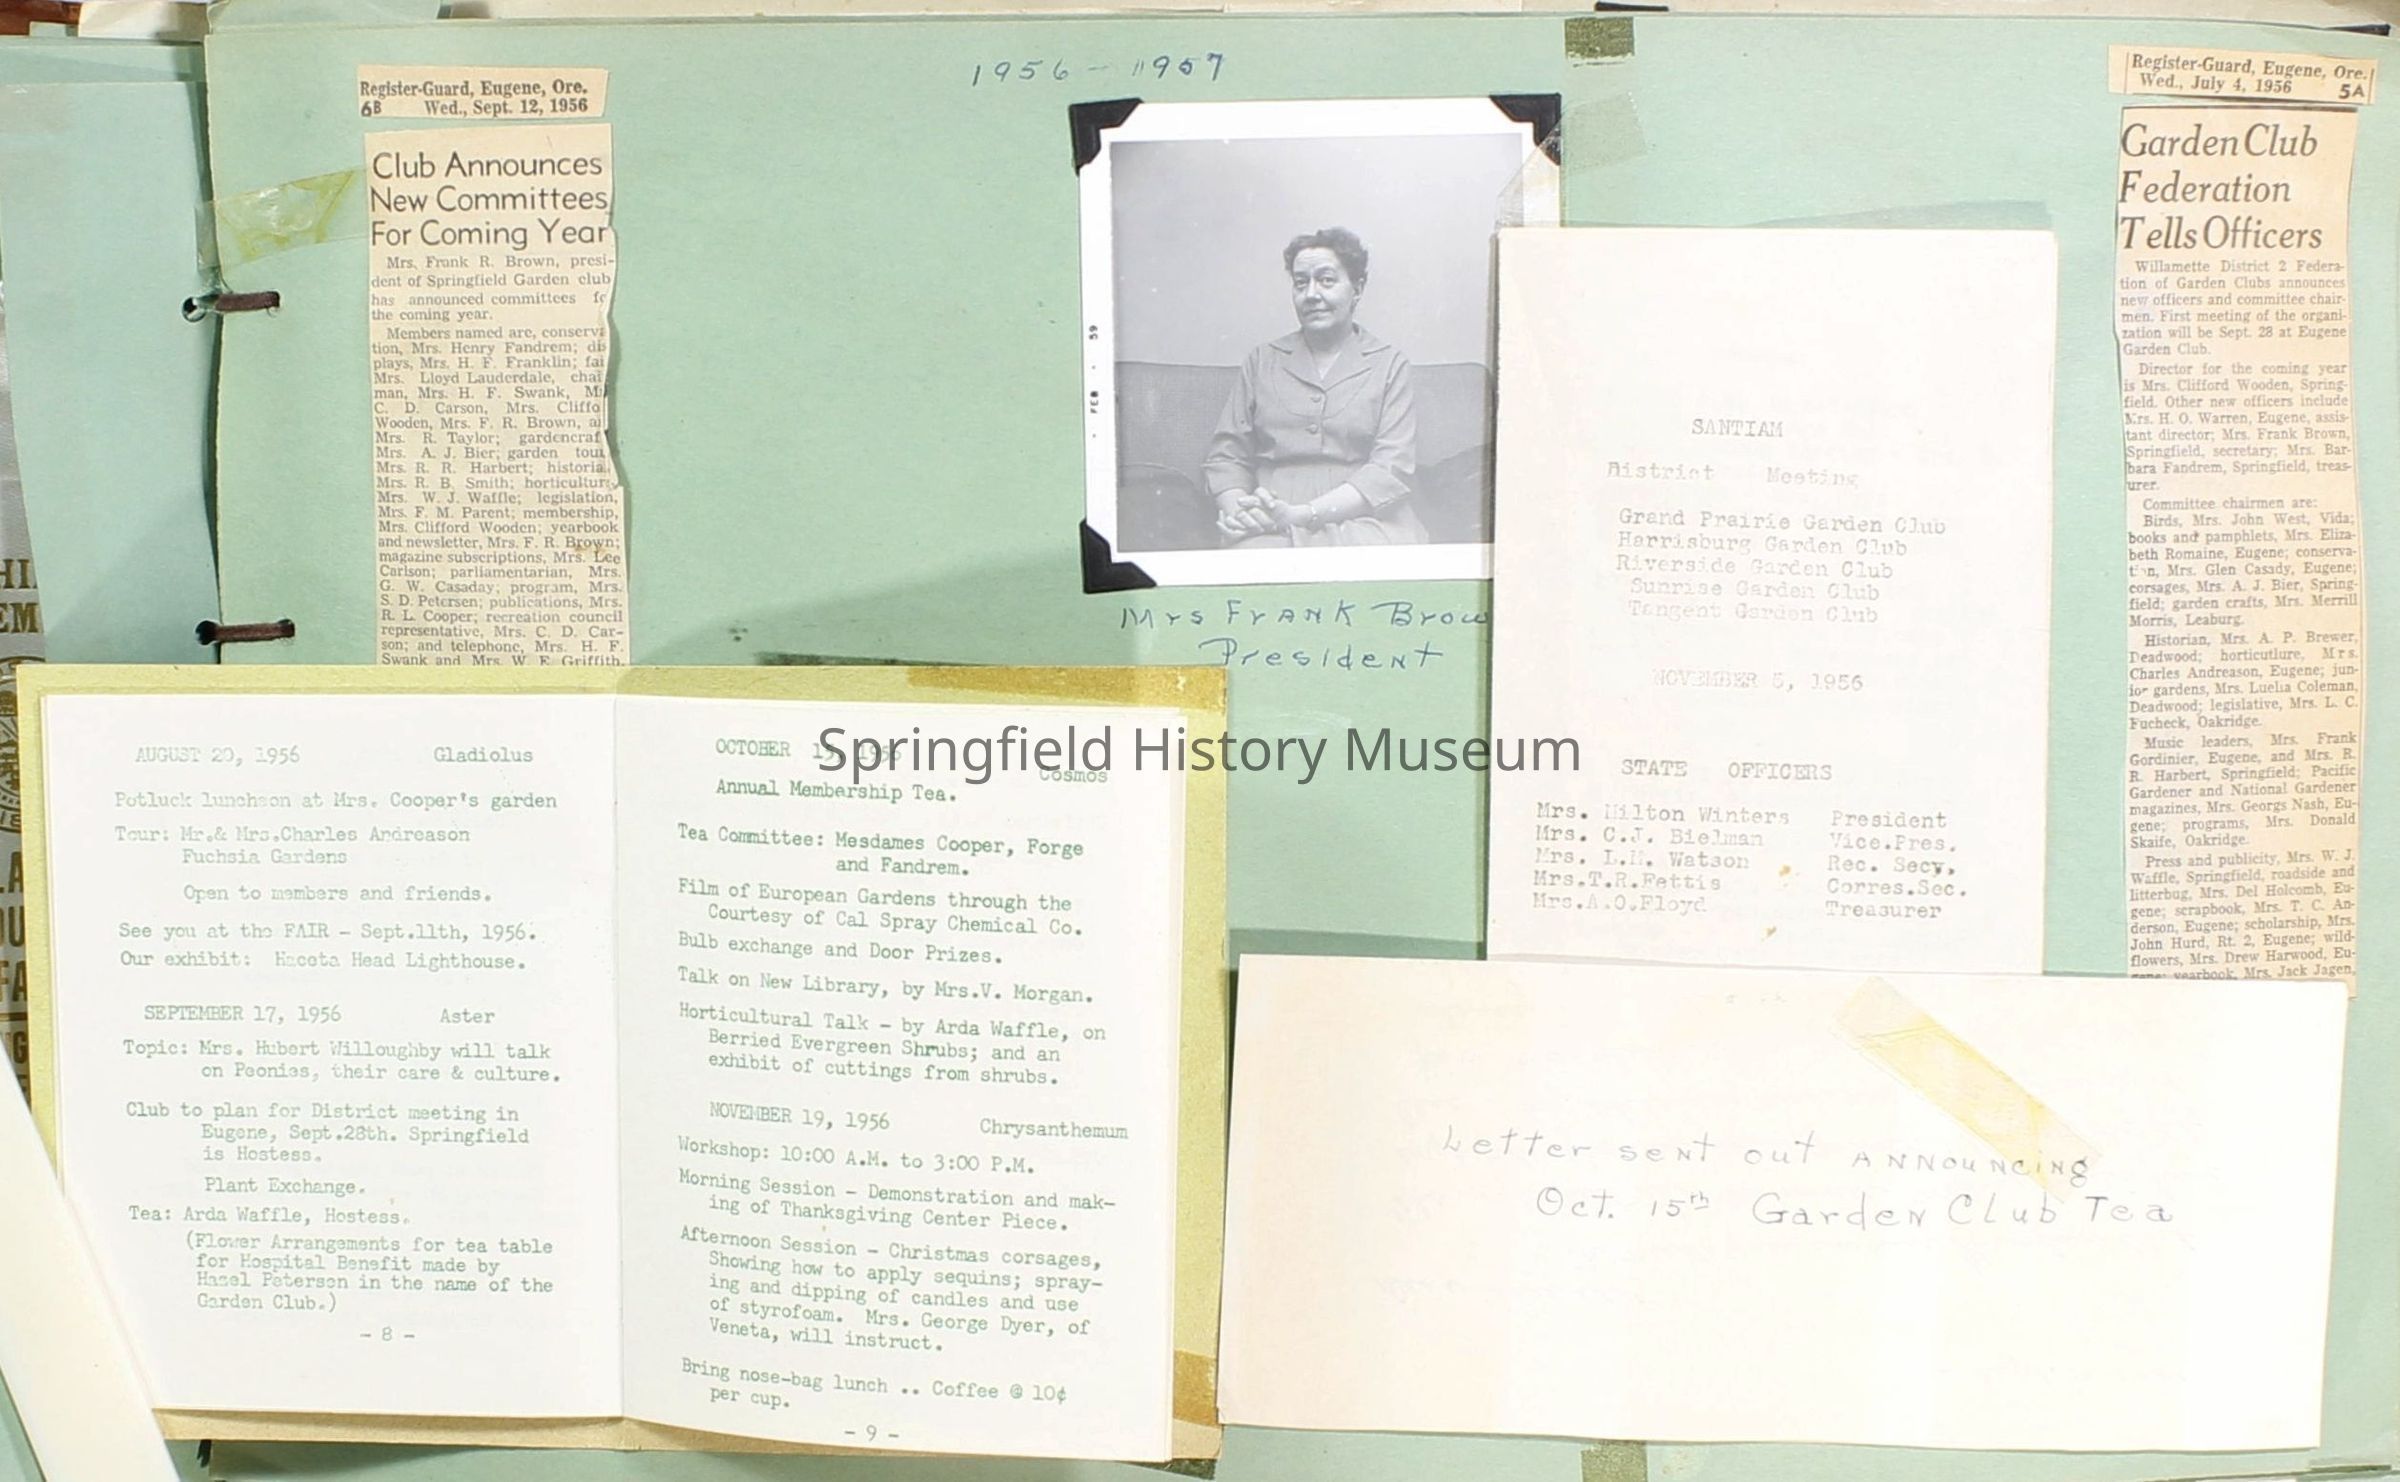 1956 - 1957
Register-Guard, Eugene, Ore.
6B Wed., Sept. 12, 1956
Club Announces
New Committees
For Coming Year
Mrs. Frank R. Brown, presi-
dent of Springfield Garden club
has announced committees
the coming year.
Members named are, conserva
tion, Mrs. Henry Fandrem; dis
plays, Mrs. H. F. Franklin; fai
Mrs. Lloyd Lauderdale, chai
man, Mrs. H. F. Swank, M
C. D. Carson, Mrs. Cliffo
Wooden, Mrs. F. R. Brown, a
Mrs. R. Taylor; gardencraf
Mrs. A. J. Bier; garden tour
Mrs. R. R. Harbert; historia
Mrs. R. B. Smith; horticulture
Mrs. W. J. Waffle; legislation,
Mrs. F. M. Parent; membership,
Mrs. Clifford Wooden; yearbook
and newsletter, Mrs. F. R. Brown;
magazine subscriptions, Mrs. Lee
Carlson; parliamentarian, Mrs.
G. W. Casaday; program, Mrs.
S. D. Petersen; publications, Mrs.
R. L. Cooper; recreation council
representative, Mrs. C. D. Car-
son; and telephone, Mrs. H. F.
Swank and Mrs. W. F. Griffith.
FEB · 59
Mrs FrANK Brow
President
SANTIAM
District Meeting
Grand Prairie Garden Club
Harrisburg Garden Club
Riverside Garden Club
Sunrise Garden Club
Tangent Garden Club
NOVEMBER 5, 1956
STATE OFFICERS
Mrs. Milton Winters President
Mrs. C.J. Bielman Vice.Pres.
Mrs. L.M. Watson Rec. Secy,
Mrs.T.R.Fettis Corres.Sec.
Mrs.A.O.Floyd Treasurer
Register-Guard, Eugene, Ore.
Wed., July 4, 1956 5A
Garden Club
Federation
Tells Officers
Willamette District 2 Federa-
tion of Garden Clubs announces
new officers and committee chair-
men. First meeting of the organi-
zation will be Sept. 28 at Eugene
Garden Club.
Director for the coming year
is Mrs. Clifford Wooden, Spring-
field. Other new officers include
Mrs. H. O. Warren, Eugene, assis-
tant director; Mrs. Frank Brown,
Springfield, secretary; Mrs. Bar-
bara Fandrem, Springfield, treas-
urer.
Committee chairmen are:
Birds, Mrs. John West, Vida;
books and pamphlets, Mrs. Eliza-
beth Romaine, Eugene; conserva-
tion, Mrs. Glen Casady, Eugene;
corsages, Mrs. A. J. Bier, Spring-
field; garden crafts, Mrs. Merrill
Morris, Leaburg.
Historian, Mrs. A. P. Brewer,
Deadwood; horticutlure, Mrs.
Charles Andreason, Eugene; jun-
ior gardens, Mrs. Luelia Coleman,
Deadwood; legislative, Mrs. L. C.
Fucheck, Oakridge.
Music leaders, Mrs. Frank
Gordinier, Eugene, and Mrs. R.
R. Harbert, Springfield; Pacific
Gardener and National Gardener
magazines, Mrs. Georgs Nash, Eu-
gene; programs, Mrs. Donald
Skaife, Oakridge.
Press and publicity, Mrs. W. J.
Waffle, Springfield, roadside and
litterbug, Mrs. Del Holcomb, Eu-
gene; scrapbook, Mrs. T. C. An-
derson, Eugene; scholarship, Mrs.
John Hurd, Rt. 2, Eugene; wild-
flowers, Mrs. Drew Harwood, Eu-
gene; yearbook, Mrs. Jack Jagen,
Springfield History Museum
AUGUST 20, 1956 Gladiolus
Potluck luncheon at Mrs. Cooper's garden
Tour: Mr.& Mrs.Charles Andreason
Fuchsia Gardens
Open to members and friends.
See you at the FAIR - Sept.11th, 1956.
Our exhibit: Haceta Head Lighthouse.
SEPTEMBER 17, 1956 Aster
Topic: Mrs. Hubert Willoughby will talk
on Peonies, their care & culture.
Club to plan for District meeting in
Eugene, Sept.28th. Springfield
is Hostess.
Plant Exchange.
Tea: Arda Waffle, Hostess.
(Flower Arrangements for tea table
for Hospital Benefit made by
Hazel Peterson in the name of the
Garden Club.)
- 8 -
OCTOBER 15, 1956
Cosmos
Annual Membership Tea.
Tea Committee: Mesdames Cooper, Forge
and Fandrem.
Film of European Gardens through the
Courtesy of Cal Spray Chemical Co.
Bulb exchange and Door Prizes.
Talk on New Library, by Mrs.V. Morgan.
Horticultural Talk - by Arda Waffle, on
Berried Evergreen Shrubs; and an
exhibit of cuttings from shrubs.
NOVEMBER 19, 1956 Chrysanthemum
Workshop: 10:00 A.M. to 3:00 P.M.
Morning Session - Demonstration and mak-
ing of Thanksgiving Center Piece.
Afternoon Session - Christmas corsages,
Showing how to apply sequins; spray-
ing and dipping of candles and use
of styrofoam. Mrs. George Dyer, of
Veneta, will instruct.
Bring nose-bag lunch .. Coffee @ 10¢
per cup.
- 9 -
Letter sent out ANNOUNCING
Oct. 15th Garden Club Tea